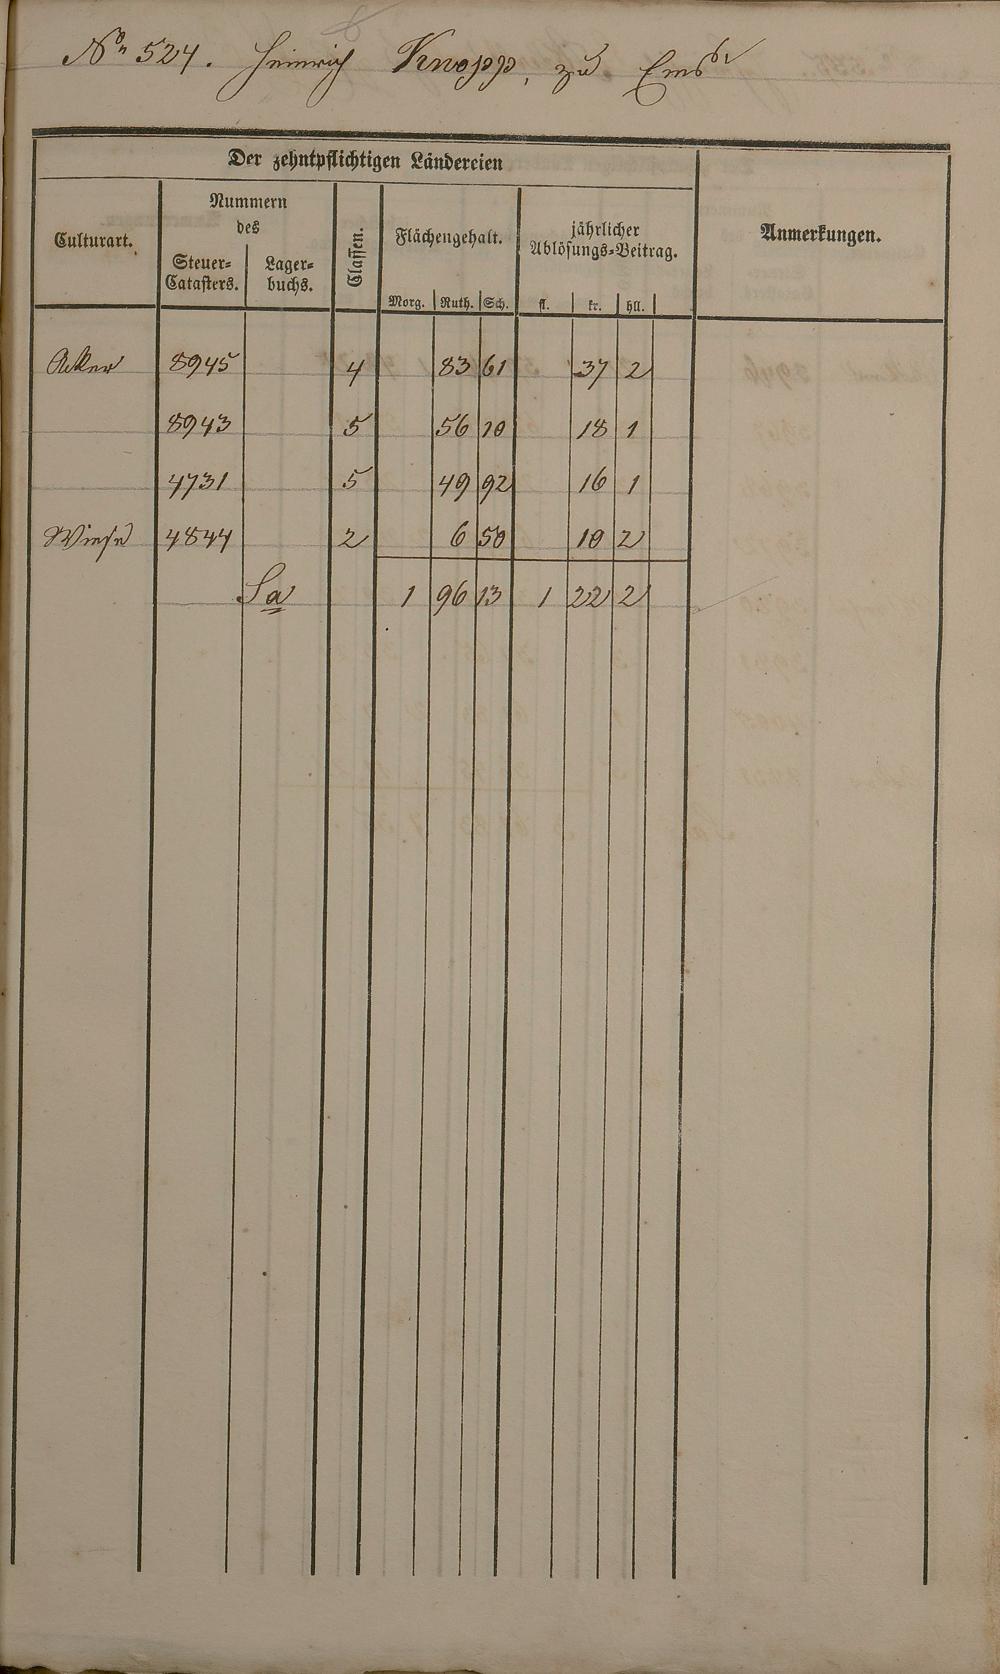 No 524. Heinrich Knopp, zu Ems
Der zehntpflichtigen Ländereien
Culturart. Nummern des Classen. Flächengehalt. jährlicher Ablösungs-Beitrag. Anmerkungen.
Steuer-Catasters. Lager-buchs.
Morg. Ruth. Sch. fl. kr. hll.
Acker 8945 4 83 61 37 2
8943 5 56 10 18 1
4731 5 49 92 16 1
Wiese 4844 2 6 50 10 2
Sa 1 96 13 1 22 2